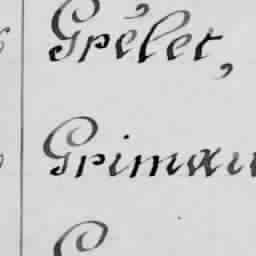 Grêlet,
Grimau